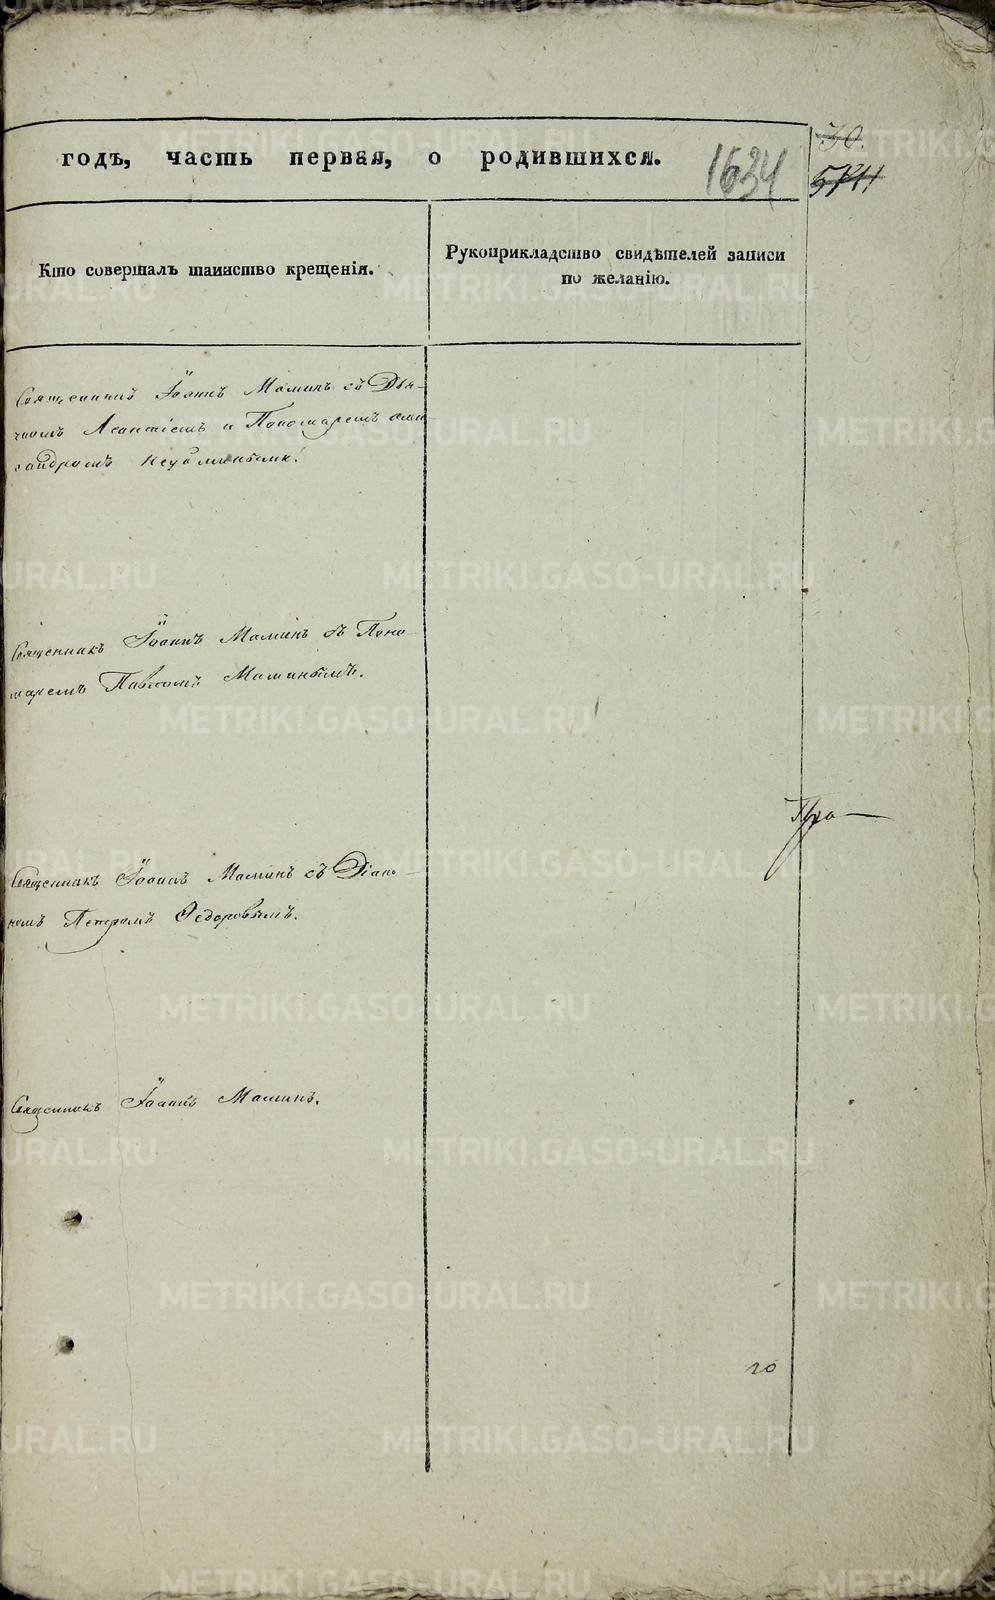 годъ, часть первая, о родившихся.
1634
30.
Кто совершалъ таинство крещенія.
Рукоприкладство свидѣтелей записи
по желанію.
Священникъ Іоаннъ Маминъ съ Дья-
чкомъ и Пономаремъ Алек
сандромъ
Священникъ Іоаннъ Маминъ съ Поно-
маремъ Павломъ Маминымъ.
Пра—
Священникъ Іоаннъ Маминъ съ Діако-
номъ Петромъ Ѳедоровымъ.
Священникъ Іоаннъ Маминъ.
20
METRIKI.GASO-URAL.RU